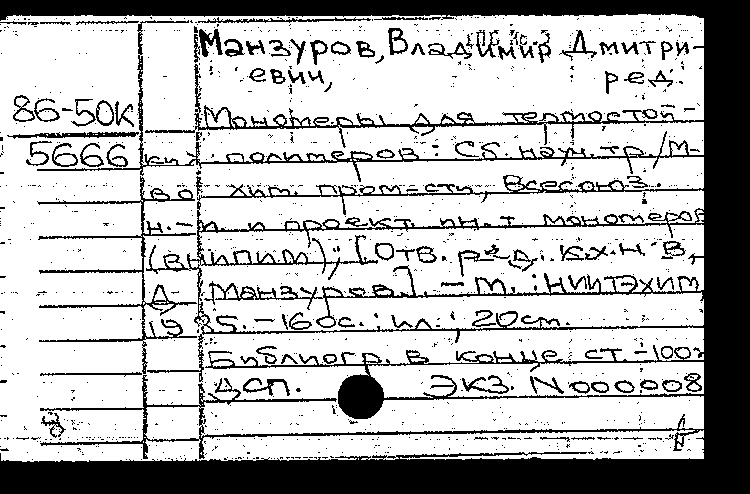 Манзуров, Владимир Дмитри-
евич, ред.
86-50К
5666
Мономеры для термостой-
ких полимеров : Сб. науч. тр. / М-
во хим. пром-сти, Всесоюз.
н.-и. и проект. ин-т мономеров
(ВНИПИМ); [Отв. ред. к.х.н В,
Д. Манзуров]. - М. : НИИТЭХИМ,
1985. - 160с. : ил.; 20см.
Библиогр. в конце ст. - 100
ДСП. Экз. N000008